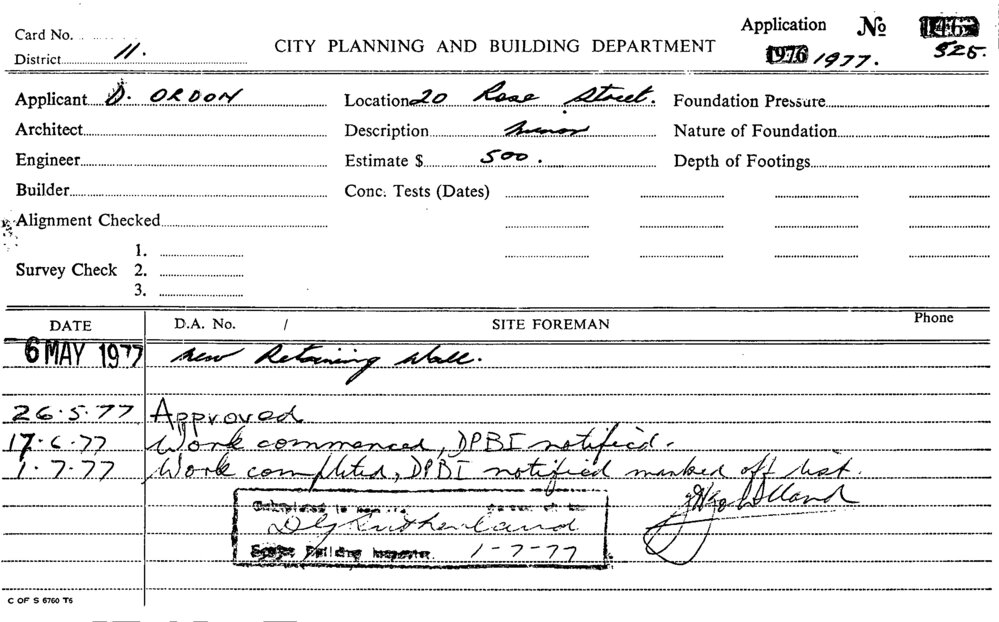 Card No.
Application No 1467
District 11.
CITY PLANNING AND BUILDING DEPARTMENT
1976 1977. 525.
Applicant D. ORDON
Location 20 Rose Street.
Foundation Pressure
Architect
Description minor
Nature of Foundation
Engineer
Estimate $ 500.
Depth of Footings
Builder
Conc. Tests (Dates)
Alignment Checked
1.
Survey Check 2.
3.
DATE D.A. No. / SITE FOREMAN Phone
6 MAY 1977 new Retaining Wall.
26.5.77 Approved
17.6.77 Work commenced, DPBI notified.
1.7.77 Work completed, DPBI notified marked off list.
Building Inspector. 1-7-77
C OF S 6760 T6